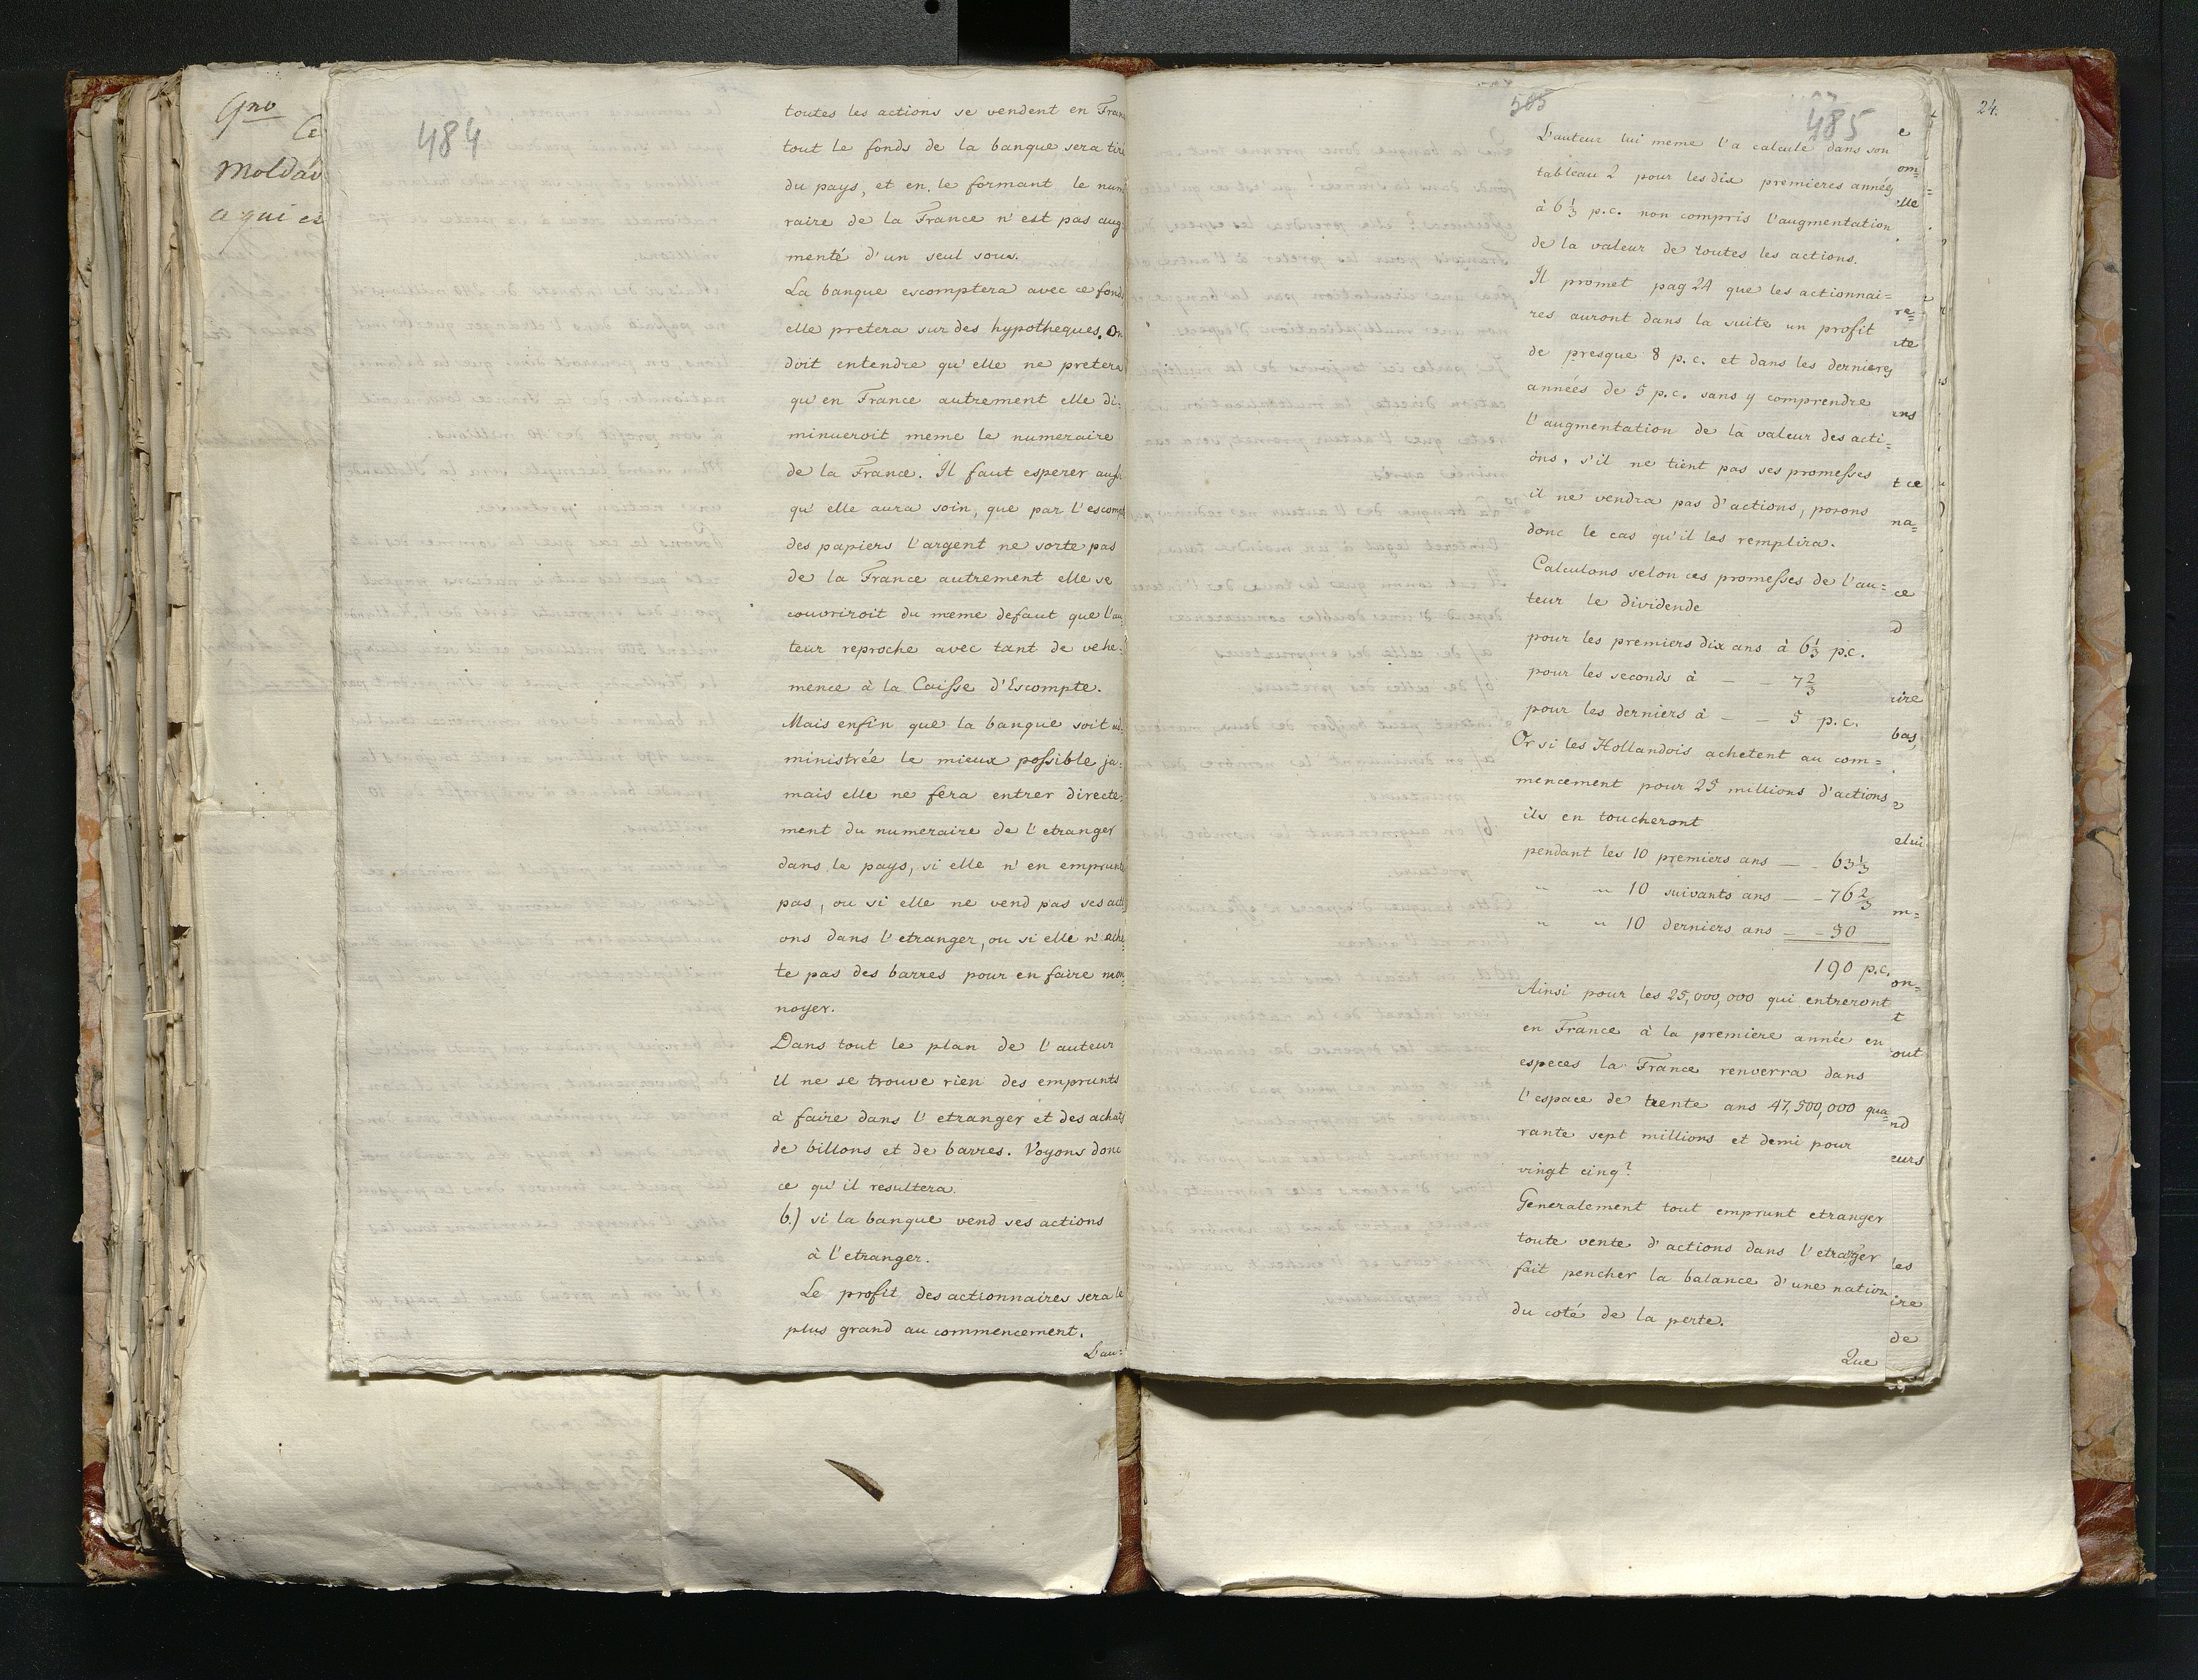 9no
Ce
Moldav
ce qui es
484
toutes les actions se vendent en Fran
tout le fonds de la banque sera tire
du pays, et en le formant le num
raire de la France n'est pas aug
menté d'un seul sous.
La banque escomptera avec ce fond
elle pretera sur des hypotheques. On
doit entendre qu'elle ne pretera
qu'en France autrement elle di:
minueroit meme le numeraire
de la France. Il faut esperer aussi
qu'elle aura soin, que par l'escomp
des papiers l'argent ne sorte pas
de la France autrement elle se
couvriroit du meme defaut que l'au
teur reproche avec tant de vehe:
mence à la Caisse d'Escompte.
Mais enfin que la banque soit ad:
ministrée le mieux possible ja:
mais elle ne fera entrer directe:
ment du numeraire de l'etranger
dans le pays, si elle n'en emprunte
pas, ou si elle ne vend pas ses acti
ons dans l'etranger, ou si elle n'ache
te pas des barres pour en faire mon:
noyer.
Dans tout le plan de l'auteur
il ne se trouve rien des emprunts
à faire dans l'etranger et des achats
de billons et de barres. Voyons donc
ce qu'il resultera
b.) si la banque vend ses actions
à l'etranger.
Le profit des actionnaires sera le
plus grand au commencement.
L'au:
505
485
24.
L'auteur lui meme l'a calcule dans son
tableau 2 pour les dix premieres années
à 6 1/3 p.c. non compris l'augmentation
de la valeur de toutes les actions.
Il promet pag 24 que les actionnai=
res auront dans la suite un profit
de presque 8 p.c. et dans les dernieres
années de 5 p.c. sans y comprendre
l'augmentation de la valeur des acti=
ons, s'il ne tient pas ses promesses
il ne vendra pas d'actions, posons
donc le cas qu'il les remplira.
Calculons selon ces promesses de l'au=
teur le dividende
pour les premiers dix ans à 6 1/3 p.c.
pour les seconds à — — 7 2/3
pour les derniers à — — 5 p.c.
Or si les Hollandois achetent au com=
mencement pour 25 millions d'actions
ils en toucheront
pendant les 10 premiers ans — 63 1/3
" " 10 suivants ans — - 76 2/3
" " 10 derniers ans — - 50
190 p.c.
Ainsi pour les 25,000,000 qui entreront
en France à la premiere année en
especes la France renverra dans
l'espace de trente ans 47,500,000 qua=
rante sept millions et demi pour
vingt cinq?
Generalement tout emprunt etranger
toute vente d'actions dans l'etranger
fait pencher la balance d'une nation
du coté de la perte.
Que